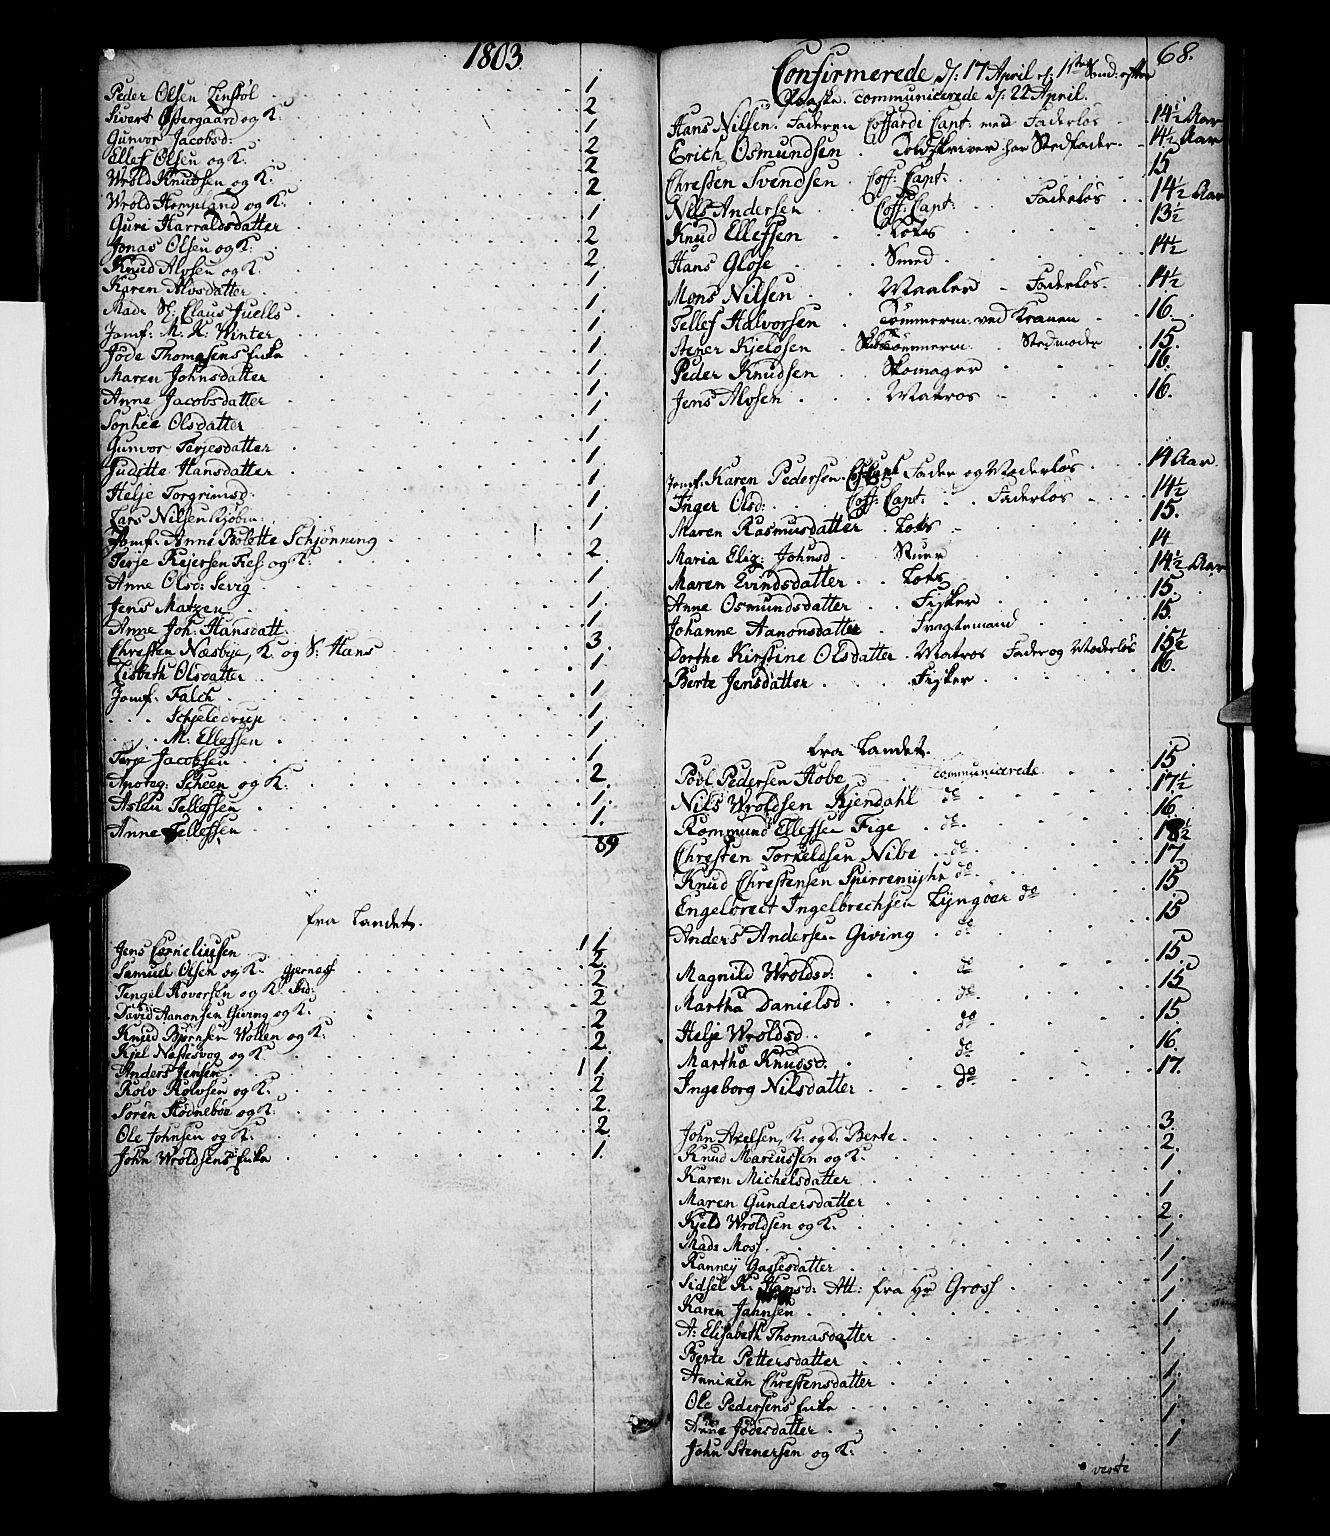 1803
Peder Olsen Linstøl 1
Sivert Østergaard og K: 2
Gunvor Jacobsd: 1
Ellef Olsen og K. 2
Wrold Knudsen og K. 2
Wrold Hempland og K: 2
Guri Harraldsdatter 1
Jonas Olsen og K. 2
Knud Alvsen og K. 2
Karen Alvsdatter 1
Mad: Sl: Claus Juells 1
Jomf: M. K. Winter 1
Jøde Thomesens Enke 1
Maren Johnsdatter 1
Anne Jacobsdatter 1
Sophie Olsdatter 1
Gunvor Terjesdatter 1
Juditte Hansdatter 1
Helje Torgrimsd: 1
Lars Nilsen 1
Jomf: Anne Bolette Schjønning 1
Terje Rejersen og K: 2
Anne Olsd: Sevig 1
Jens Matzen 1
Anne Joh: Hansdatt: 1
Chresten Næsbye, K. og S: Hans 3.
Lisbeth Olsdatter 1
Jomf: Falch 1
Schjelderup 1
M: Ellefsen 1
Terje Jacobsen 1
Anotag: Scheen og K: 2
Aslau Tellefsen 1.
Anne Tellefsen 1.
89
fra Landet.
Jens Corneliusen 1 1
Samuel Olsen og K. Gjernæss 2
Tengel Aovorsen og K. Ibid: 2
David Aanonsen Giving og K: 2
Knud Bjørnsen Wollen og K: 2
Kjel Næstesvog og K: 2
Anders Jensen 1 1
Rolv Rolvsen og K: 2
Søren Rødneböe og K: 2.
Ole Johnsen og K: 2
John Wroldsens Enke 1.
68.
Confirmerede d: 17 April e: 1ste Sønd: efter
Paaske. communicerede d: 22 April.
Hans Nilsen. Faderen Coffardi Capt: med Faderløs 14½ Aar
Erich Osmundsen Toldskriver har Stedfader. 14½ Aar
Chresten Svendsen Coff: Capt: 15
Nils Andersen Coff: Capt: Faderløs 14½ Aar
Knud Ellefsen Lots 13½
Hans Glose Smed 14½
Mons Nilsen Maaler Faderløs. 14½
Tellef Halvorsen Tømmerm. ved Kranen 16.
Stener Kjeldsen Skibstømmerm. Stedmoder 15.
Peder Knudsen Skomager 16.
Jens Alvsen Matros 16.
Jomf: Karen Pedersen Fader og Moderløs 14 Aar.
Inger Olsd: Coff: Capt: Faderløs 14½
Maren Rasmusdatter Lots 15.
Maria Eliz: Johnsd Stuer 14
Maren Evindsdatter Lots 14½ Aar
Anne Osmundsdatter Fisker 15
Johanne Aanonsdatter Fragtemand 15.
Dorthe Kirstine Olsdatter Matros Fader og Moderløs 15½
Berte Jensdatter Fisker 16.
fra Landet.
Povl Pedersen Kobe communicerede 15
Nils Wroldsen Kjendahl do 17½
Rommund Ellefsen Fige do 16
Chresten Torkeldsen Nibe do 18½
Knud Chrestensen Spirremyhr do 17
Engelbrect Ingelbrechsen Lyngöer do 15
Anders Andersen Giving do 15
Magnild Wroldsd: do 15.
Martha Danielsd do 15
Helje Wroldsd do 15
Martha Knudsd. do 16.
Ingeborg Nilsdatter do 17.
John Axelsen, K: og D: Berte 3.
Knud Mariussen og K. 2.
Karen Michelsdatter 1
Maren Gundersdatter 1
Kjeld Wroldsen og K. 2.
Mads Moss 1
Ranney Gassesdatter 1
Sidsel K: Hansd: Att: fra Hr Gross 1
Karen Jahnsen 1
A: Elisabeth Thomasdatter 1
Berte Pettersdatter 1
Anniken Chrestensdatter 1
Ole Pedersens Enke 1
Anne Jödesdatter 1
John Stenersen og K. 1
verte